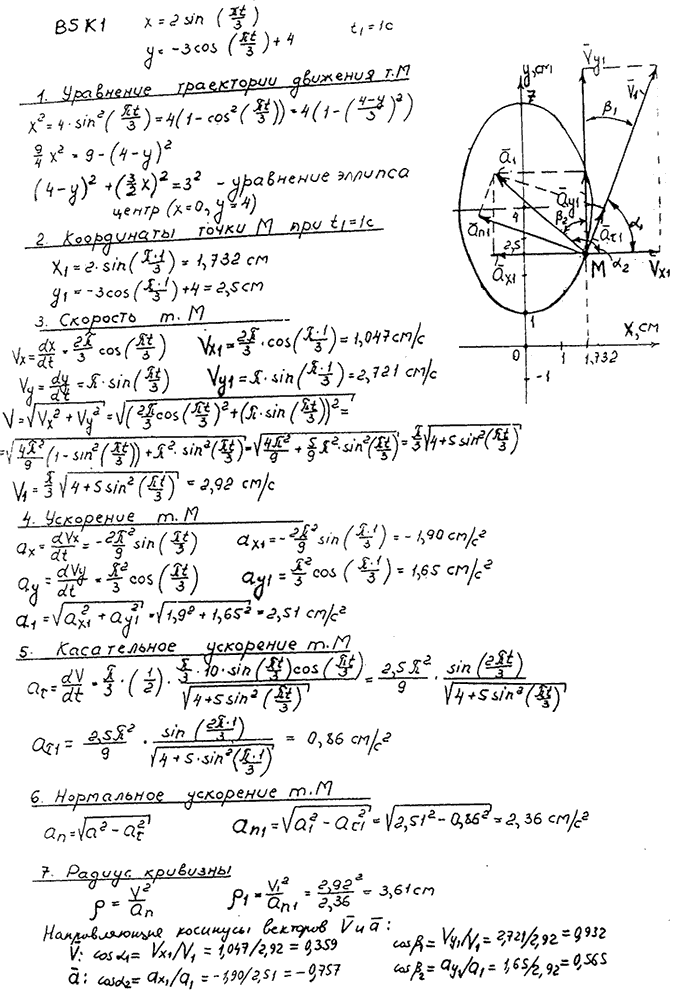 В5 К1 x = 2 sin (πt/3) t₁ = 1с
y = -3cos (πt/3) + 4
1. Уравнение траектории движения т. М
x² = 4·sin²(πt/3) = 4(1-cos²(πt/3)) = 4(1-((4-y)/3)²)
9/4 x² = 9 - (4-y)²
(4-y)² + (3/2 x)² = 3² - уравнение эллипса
центр (x=0, y=4)
2. Координаты точки М при t₁=1с
x₁ = 2·sin(π·1/3) = 1,732 см
y₁ = -3cos(π·1/3)+4 = 2,5см
3. Скорость т. М
Vx = dx/dt = 2π/3 cos(πt/3) Vx1 = 2π/3 · cos(π·1/3) = 1,047 см/с
Vy = dy/dt = π·sin(πt/3) Vy1 = π·sin(π·1/3) = 2,721 см/с
V = √(Vx² + Vy²) = √((2π/3 cos(πt/3)² + (π·sin(πt/3))² =
= √(4π²/9 (1-sin²(πt/3)) + π²·sin²(πt/3)) = √(4π²/9 + 5/9 π²·sin²(πt/3)) = π/3 √(4+5sin²(πt/3))
V₁ = π/3 √(4+5sin²(πt/3)) = 2,92 см/с
4. Ускорение т. М
ax = dVx/dt = -2π²/9 sin(πt/3) ax1 = -2π²/9 sin(π·1/3) = -1,90 см/с²
ay = dVy/dt = π²/3 cos(πt/3) ay1 = π²/3 cos(π·1/3) = 1,65 см/с²
a1 = √(ax1² + ay1²) = √(1,9² + 1,65²) = 2,51 см/с²
5. Касательное ускорение т. М
aτ = dV/dt = π/3 · (1/2) · (π/3 · 10·sin(πt/3)cos(πt/3))/√(4+5sin²(πt/3)) = 2,5π²/9 · sin(2πt/3)/√(4+5sin²(πt/3))
aτ1 = 2,5π²/9 · sin(2π·1/3)/√(4+5·sin²(π·1/3)) = 0,86 см/с²
6. Нормальное ускорение т. М
an = √(a² - aτ²) an1 = √(a1² - aτ1²) = √(2,51² - 0,86²) = 2,36 см/с²
7. Радиус кривизны
ρ = V²/an ρ1 = V1²/an1 = 2,92²/2,36 = 3,61 см
Направляющие косинусы векторов V̄ и ā:
V̄: cosα₁ = Vx1/V1 = 1,047/2,92 = 0,359 cosβ₁ = Vy1/V1 = 2,721/2,92 = 0,932
ā: cosα₂ = ax1/a1 = -1,90/2,51 = -0,757 cosβ₂ = ay1/a1 = 1,65/2,92 = 0,565
y,см
V̄y1
V̄1
7
β₁
ā1
āy1
α₁
4
β₂
ān1
āτ1
2,5
āx1
М
α₂
V̄x1
1
x,см
0
1
1,732
-1